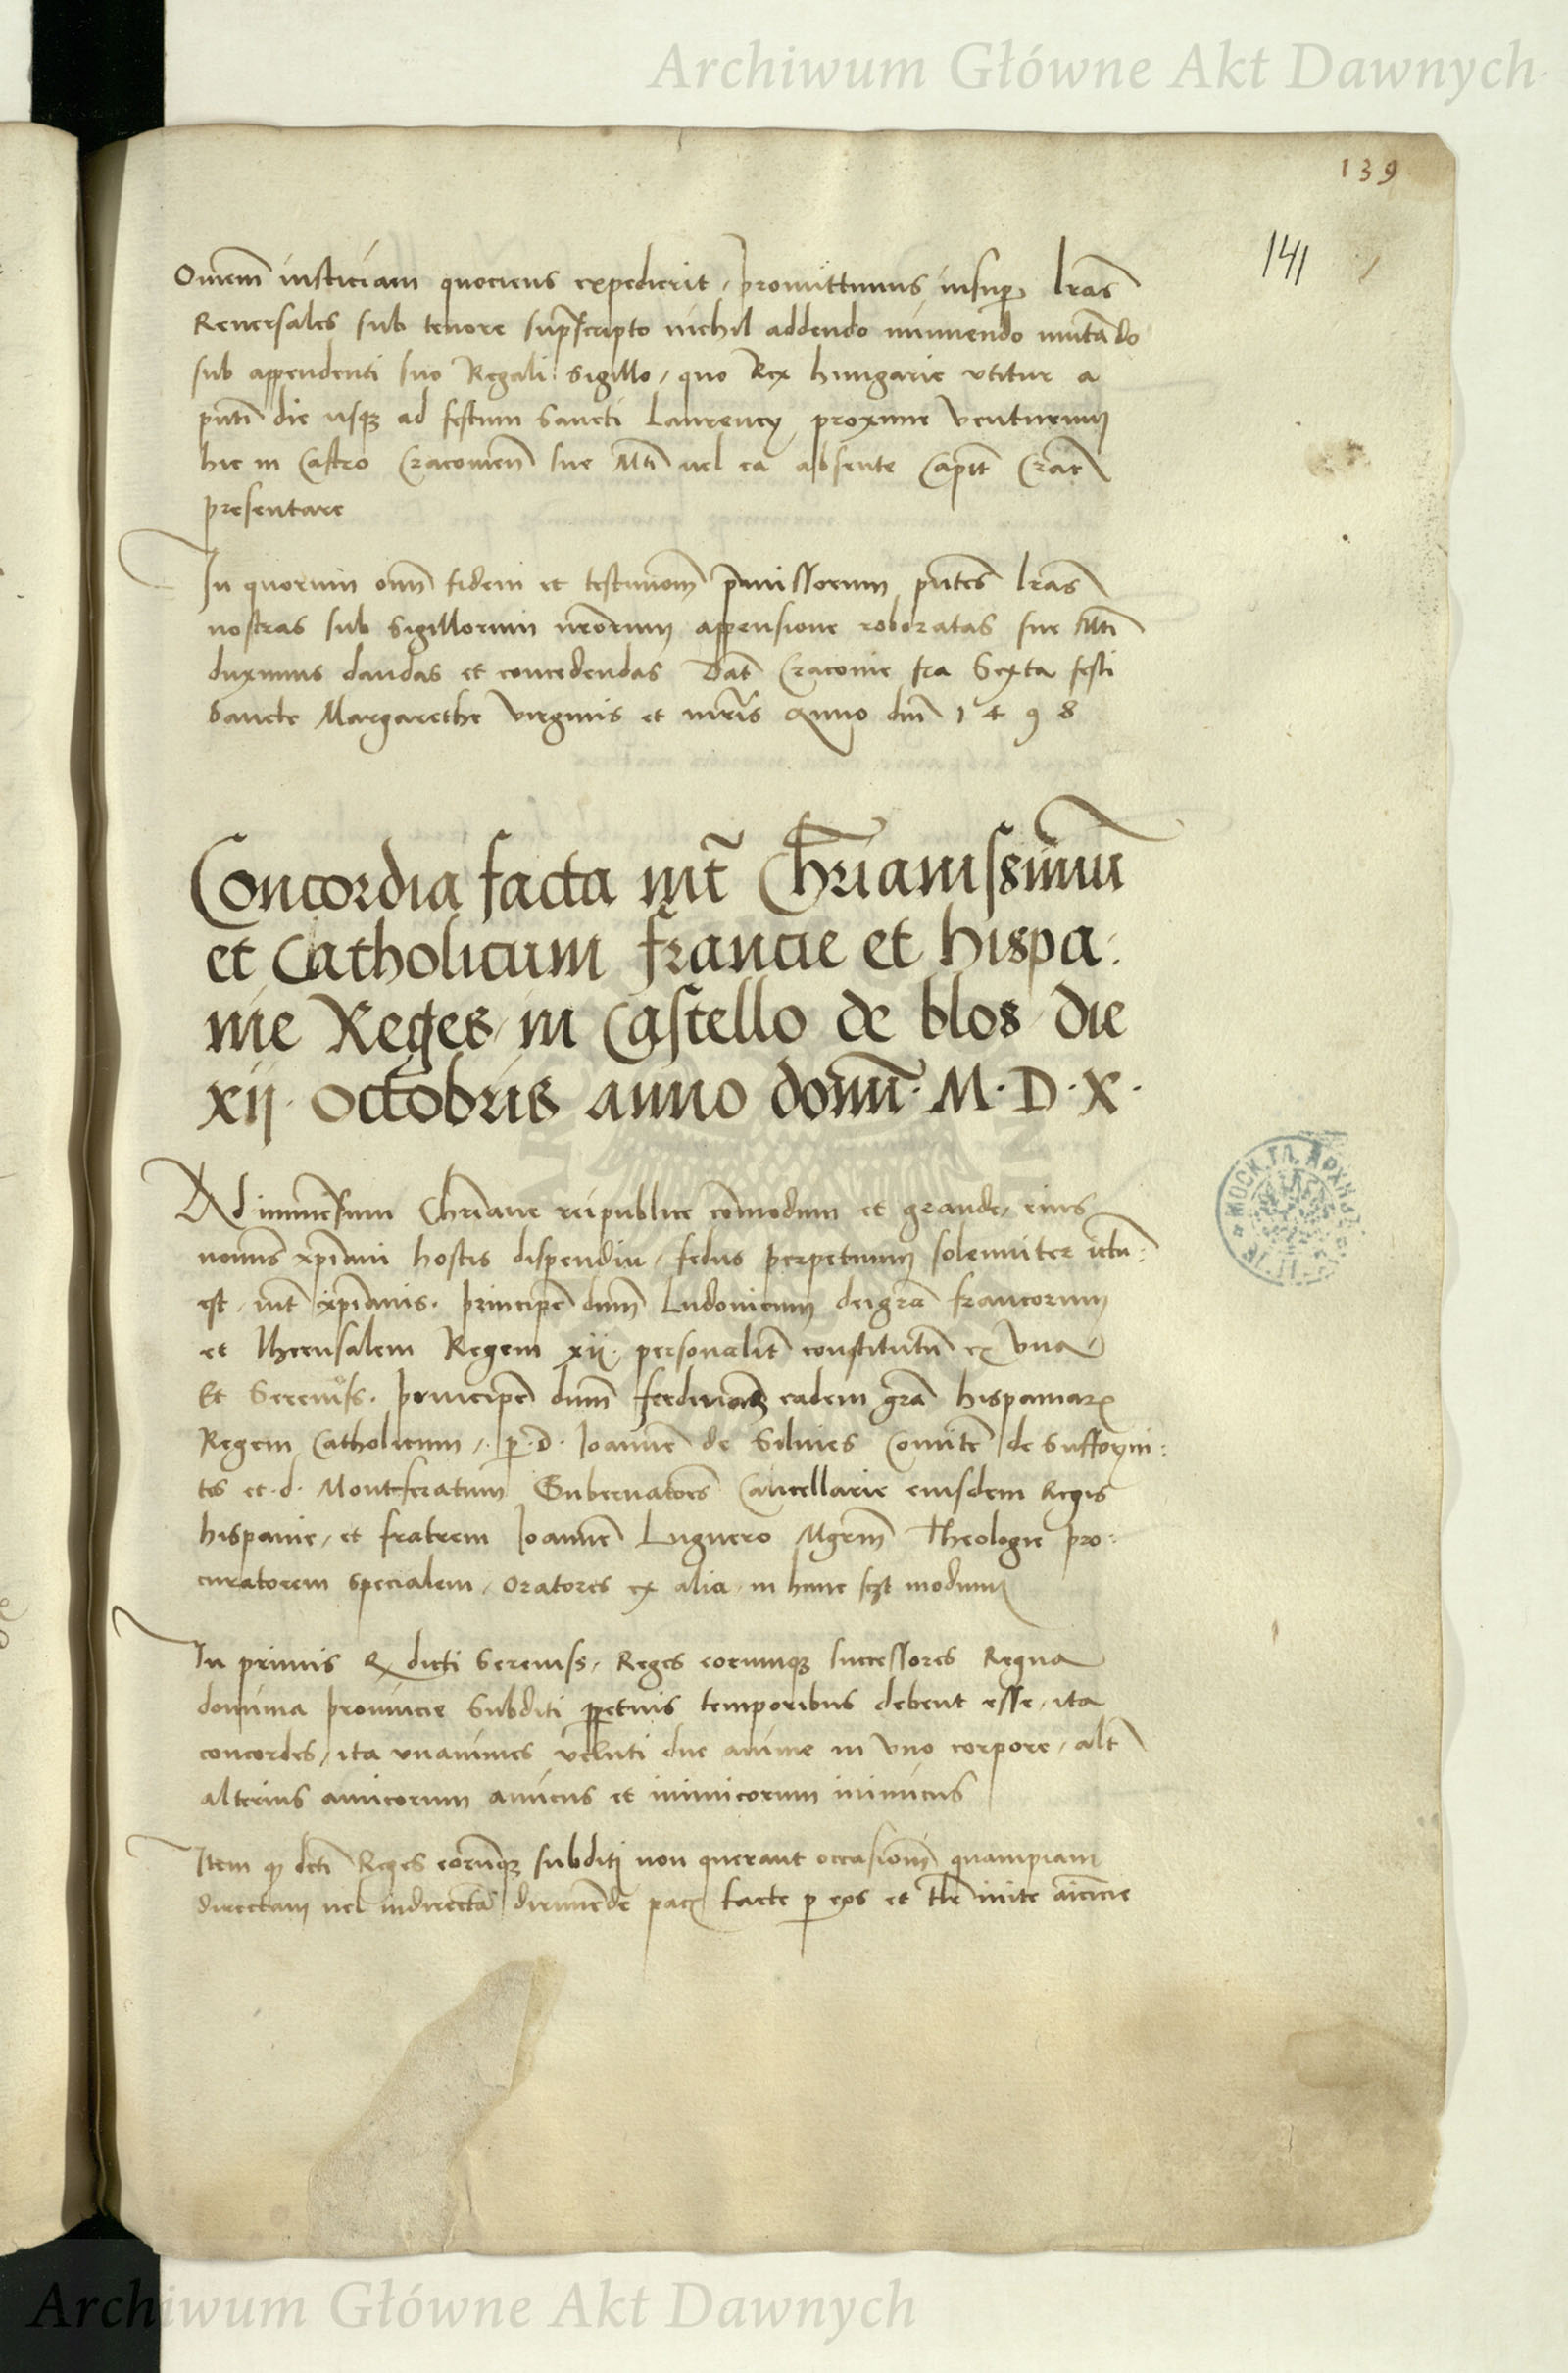 Archiwum Główne Akt Dawnych
139
141
Omnem iusticiam quociens expedierit, promittimus insuper lras
Reuersales sub tenore suprascripto nichil addendo minuendo mutando
sub appendenti suo Regali Sigillo, quo Rex hungarie vtitur a
pnti die usqz ad festum Sancti Laurencij proxime venturum
hic in Castro Cracouien sue Mti uel ea absente Capit Crac
presentare
In quorum omn fidem et testimom premissorum pntes lras
nostras sub Sigillorum nrorum appensione roboratas sue Mti
duximus dandas et concedendas Dat Cracouie fra Sexta festi
Sancte Margarethe virginis et mris Anno dni 1498
Concordia facta int Chrianissimu
et Catholicum francie et hispa:
nie Reges, in Castello de blos die
xij. Octobris anno domi. M. D. X.
Ad immensum Chriane reipublice comodum et grande, eius
nominis xpiani hostis dispendiu, fedus perpetuum solenniter ictu:
est, int xpianis. principe dnm Ludouicum dei gra francorum
et Iherusalem Regem xij. personalit constitutu ex vna
Et Sereniss. principe dnm ferdinand eadem gra hispaniarum
Regem Catholicum, p. D. Ioanne de Siluies Comite de Sufforni:
tes et. d. Montferatum Gubernatores Cancellarie eiusdem Regis
hispanie, et fratrem Ioanne Luguero Mgrm Theologie pro:
curatorem specialem, oratores ex alia, in hunc modum
In primis q dicti Sereniss. Reges eorumqz successores Regna
dominia prouincie Subditi ppetuis temporibus debent esse, ita
concordes, ita vnanimes veluti due anime in vno corpore, alt
alterius amicorum amicus et inimicorum inimicus
Item q dcti Reges eorumqz subditi non querant occasionem quampiam
directam uel indirecta dirimende pacis facte p eos et tle inite amicicie
Archiwum Główne Akt Dawnych